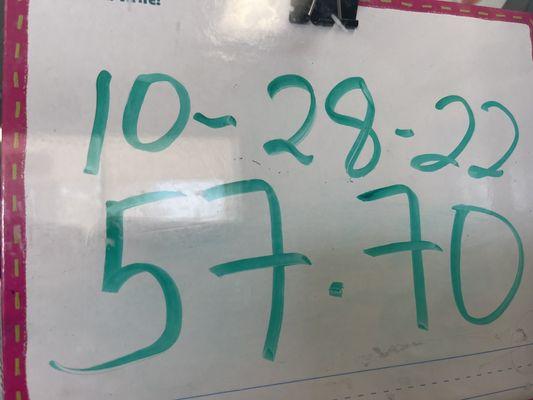 10-28-22
57.70